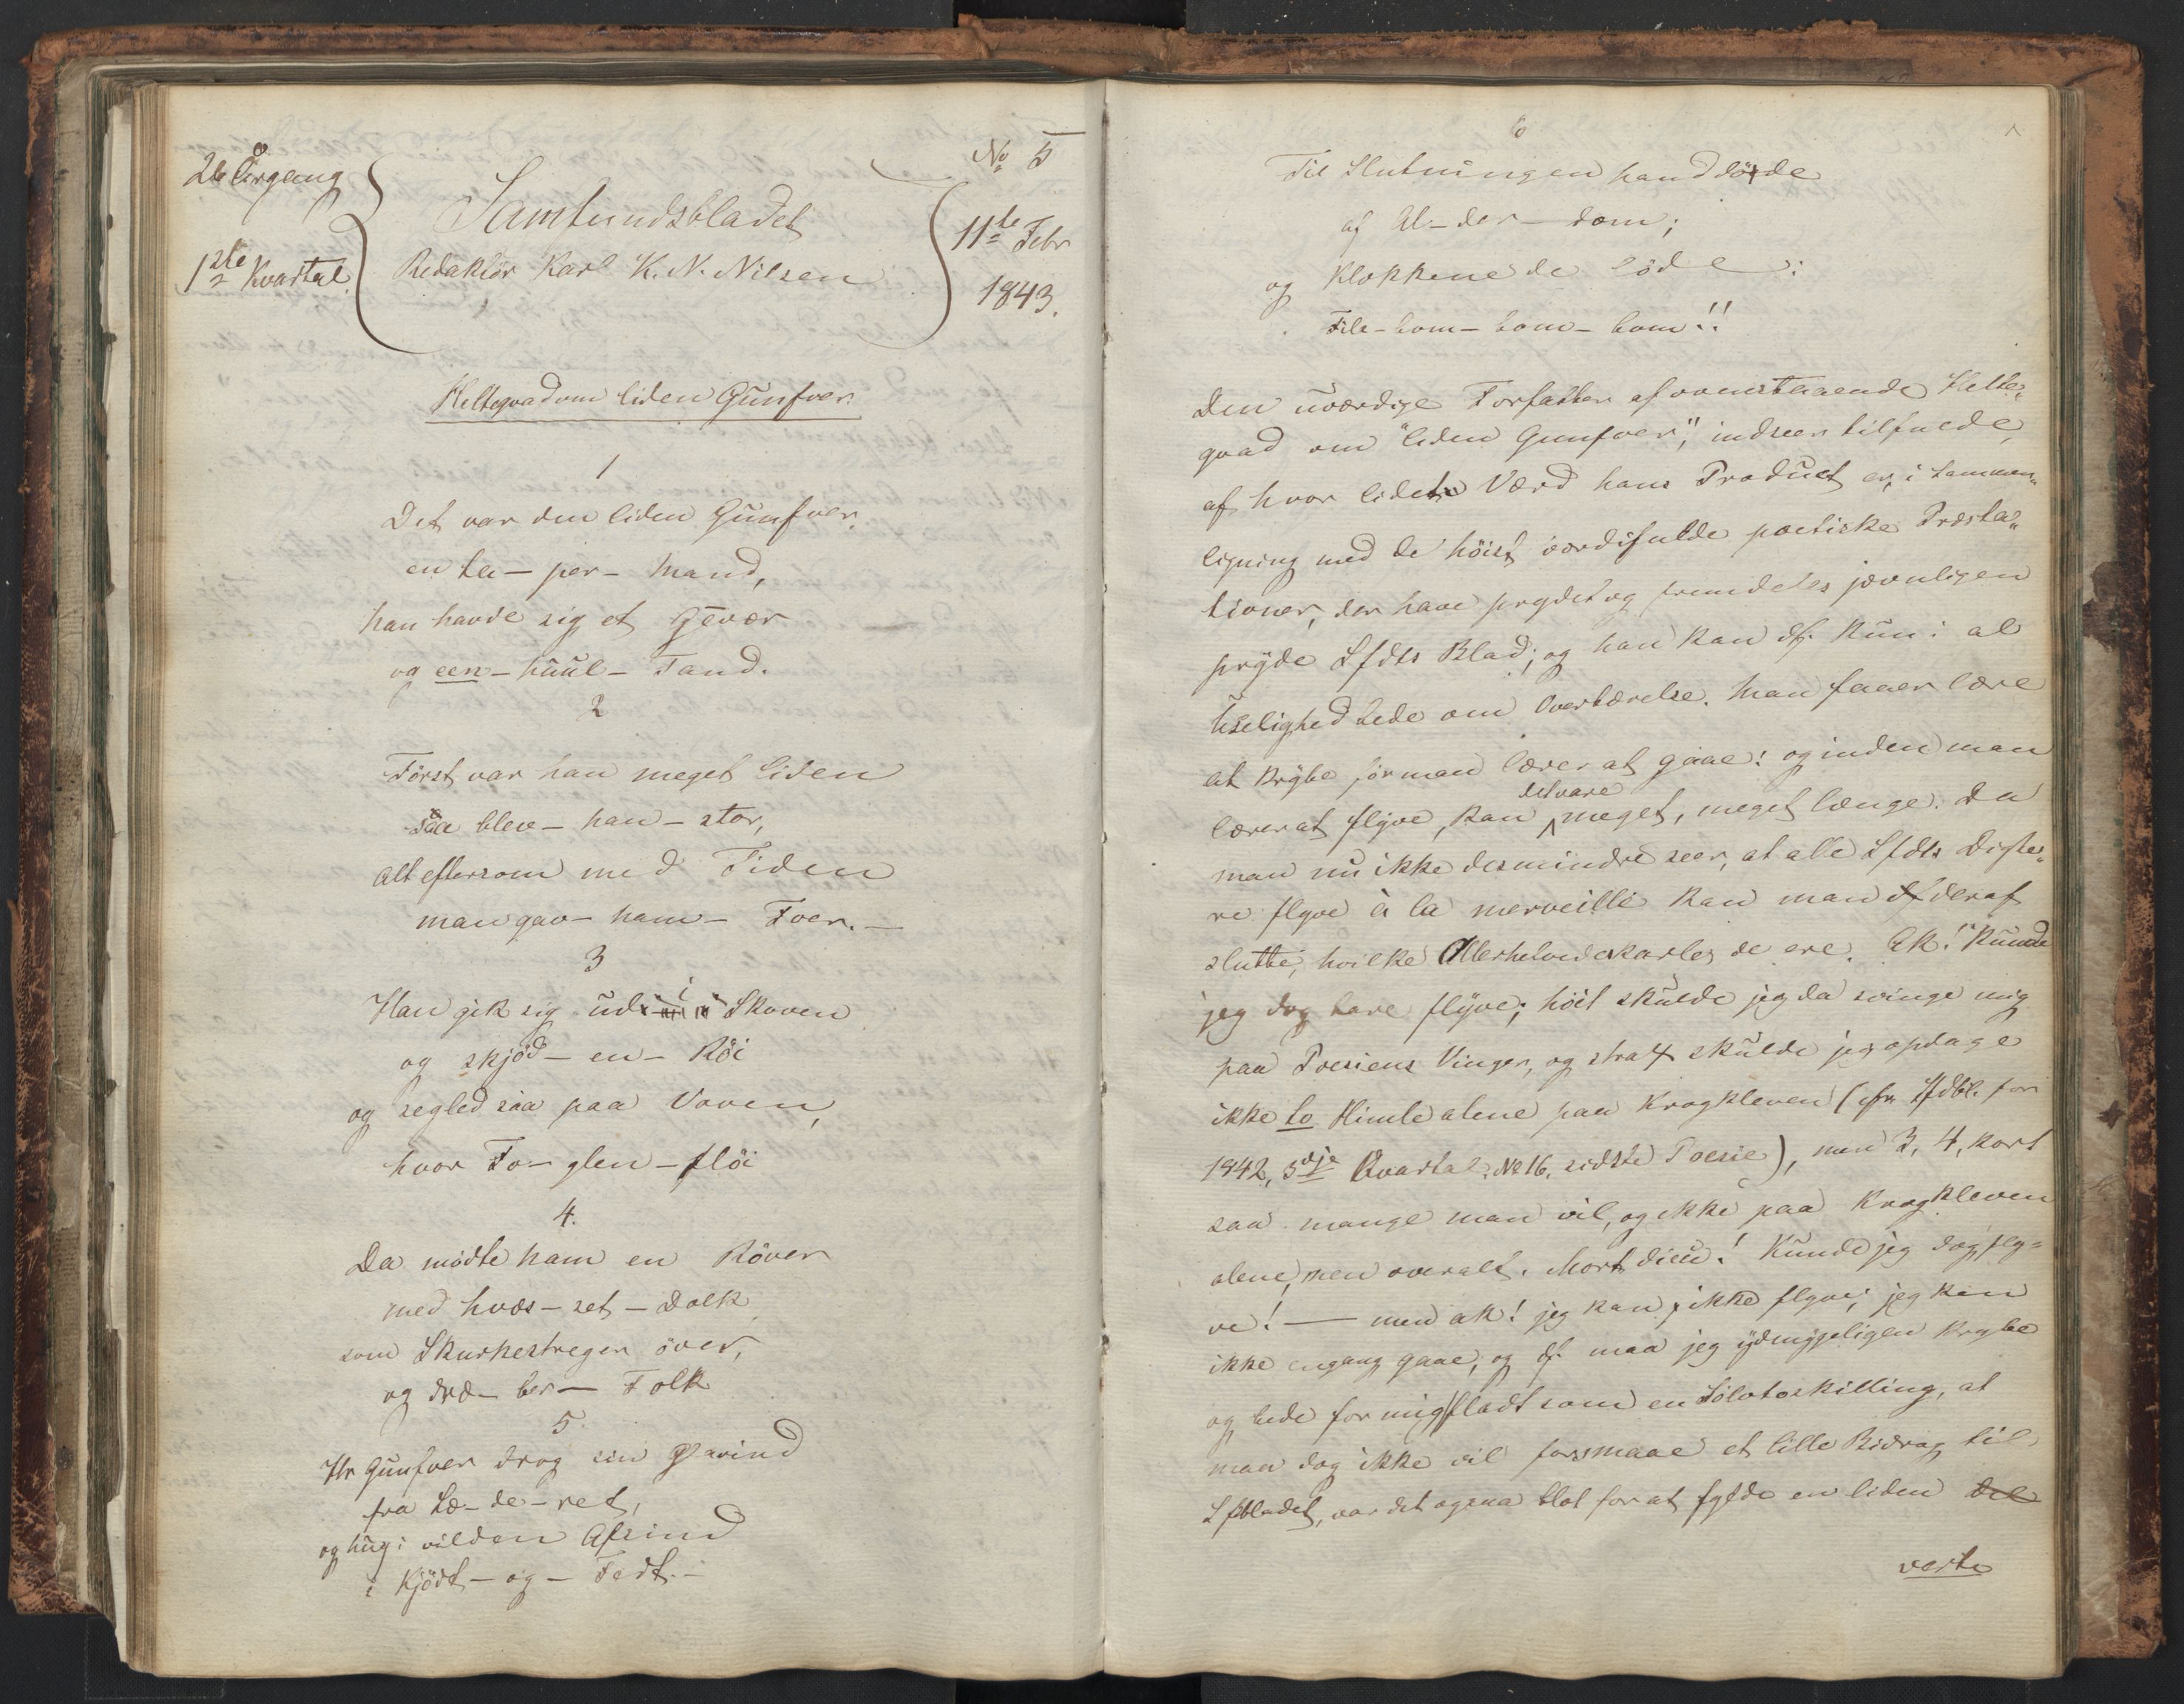 26 Årgang
1ste Kvartal.
Samfundsbladet
Redaktör Karl K. N. Nilsen
No 5
11te Febr
1843.
Helteqvad om liden Gunfver.
1
Det var den liden Gunfver,
en ta- per- Mand,
han havde sig et Gevær
og een - huul - Tand.
2
Först var han meget liden
saa blev - han - stor,
alt eftersom med Tiden
man gav - ham - Foer. -
3
Han gik sig ud i Skoven
og skjöd - en - Röi
og segled saa paa Voven,
hvor Fo- glen - flöi
4.
Da mödte ham en Röver
med hvæs - set - Dolk
som Skurkestreger över,
og dræ- ber - Folk
5.
Hr Gunfver drog sin Glavind
fra Læ- de - ret,
og hug i vilden Afsind
i Kjödt - og - Fedt. -
6
Til Slutningen han döde
af Al - der - dom;
og Klokkene de löde:
File - bom - bom - bom!!
Den uværdige Forfatter af ovenstaaende Helte„
qvad om "liden Gunfver", indseer tilfulde,
af hvor lidet Værd hans Product er, i Sammen„
ligning med de höist værdifulde poetiske Præsta„
tioner, der have prydet og fremdeles jævnligen
pryde Sfdts Blad; og han kan df. kun i al
Uselighed bede om Overbærelse. Man faaer lære
at krybe för man lærer at gaae! og inden man
lærer at flyve, kan detvare meget, meget længe. Da
man nu ikke desmindre seer, at alle Sfdts Digte„
re flyve à la merveille kan man deraf
slutte, hvilke Allerhelvedeskarler de ere. Ak! Kunde
jeg dog bare flyve; höit skulde jeg da svinge mig
paa Poesiens Vinger, og strax skulde jeg opdage
ikke to Himle alene paa Krogkleven (cfr. Sfdbl. for
1842, 3dje Qvartal. No 16. sidste Poesie), men 3, 4, kort
saa mange man vil, og ikke paa Krogkleven
alene, men overalt. Mort dieu! Kunde jeg dog fly=
ve! — men ak! jeg kan ikke flyve; jeg kan
ikke engang gaae, og df. maa jeg ydmygeligen krybe
og bede for mig fladt som en Sölvtoskilling, at
man dog ikke vil forsmaae et lille Bidrag til
Sfbladet, var det ogsaa blot for at fylde en liden Del
verte